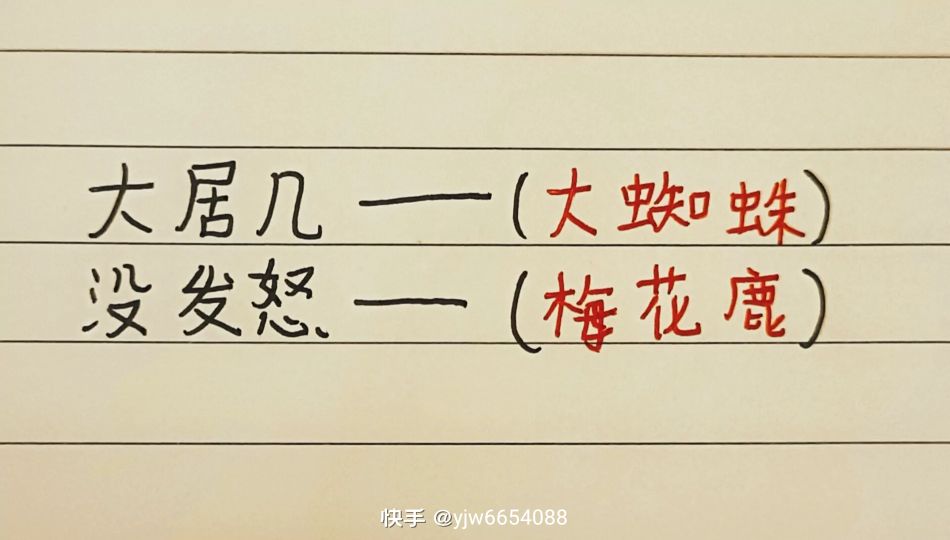 大居几——(大蜘蛛)
没发怒——(梅花鹿)
快手 @yjw6654088